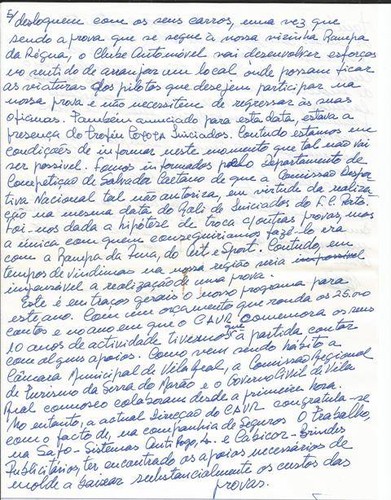 desloquem com os seus carros, uma vez que
sendo a prova que se segue à nossa vizinha Rampa
da Régua, o Clube Automóvel vai desenvolver esforços
no sentido de arranjar um local onde possam ficar
as viaturas dos pilotos que desejem participar na
nossa prova e não necessitem de regressar às suas
oficinas. Também anunciado para esta data, estava a
presença do troféu Toyota Iniciados. Contudo estamos em
condições de informar neste momento que tal não vai
ser possivel. Fomos informados pelo Departamento de
Competição de Salvador Caetano de que a Comissão Despor-
tiva Nacional tal não autoriza, em virtude da realiza-
ção na mesma data do Rali de Iniciados do F.C. Porto.
Foi-nos dada a hipótese de troca c/outras provas, mas
a única com quem conseguiriamos fazê-lo era
com a Rampa da do Sport. Contudo, em
tempos de vindimas na nossa região seria
impossível a realização de uma prova.
Este é em traços gerais o nosso programa para
este ano. Com um orçamento que ronda os 25.000
contos e no ano em que o CAVR comemora os seus
10 anos de actividade tivemos que à partida contar
com alguns apoios. Como vem sendo hábito a
Câmara Municipal de Vila Real, a Comissão Regional
de Turismo da Serra do Marão e o Governo Civil de Vila
Real connosco colaboram desde a primeira hora.
No entanto, a actual Direcção do CAVR congratula-se
com o facto de, na companhia de Seguros O Trabalho,
na Safo - Sistemas e Cabicor - Brindes
Publicitários, ter encontrado os apoios necessários de
molde a baixar substancialmente os custos das
provas.